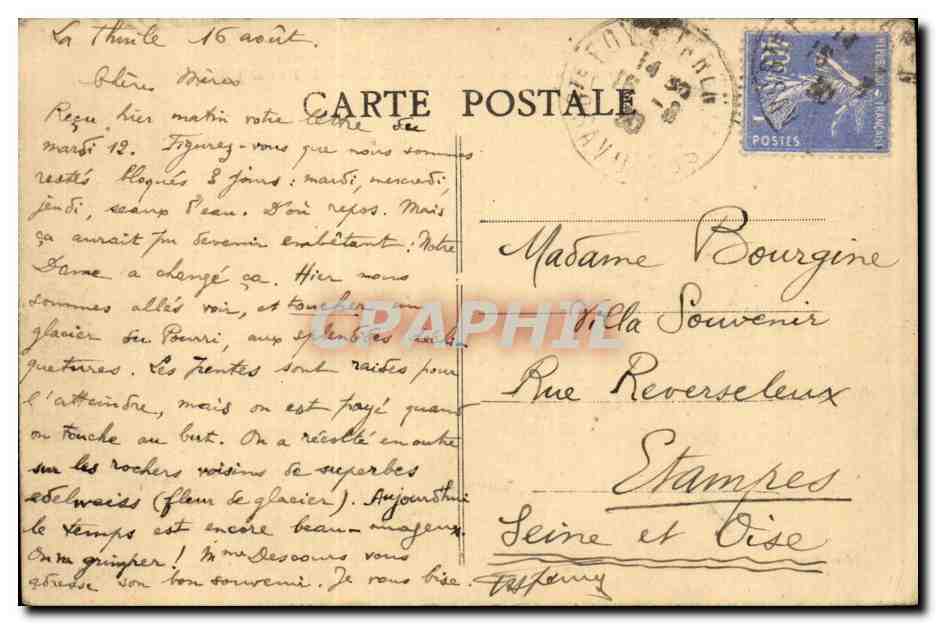 La Thuile 16 août.
Chères Mères
CARTE POSTALE
Reçu hier matin votre lettre du
mardi 12. Figurez-vous que nous sommes
restés bloqués 3 jours : mardi, mercredi,
jeudi, seaux d'eau. D'où repos. Mais
ça aurait pu devenir embêtant : Notre
Dame a changé ça. Hier nous
sommes allés voir, et toucher un
glacier du Pourri, aux splendides déch-
quetures. Les pentes sont raides pour
l'atteindre, mais on est payé quand
on touche au but. On a récolté en outre
sur les rochers voisins de superbes
edelweiss (fleur de glacier). Aujourd'hui
le temps est encore beau-nuageux.
On va grimper ! Mme Descours vous
adresse son bon souvenir. Je vous bise.
POSTES
FRANÇAISE
Madame Bourgine
Villa Souvenir
Rue Reverseleux
Etampes
Seine et Oise
CPAPHIL